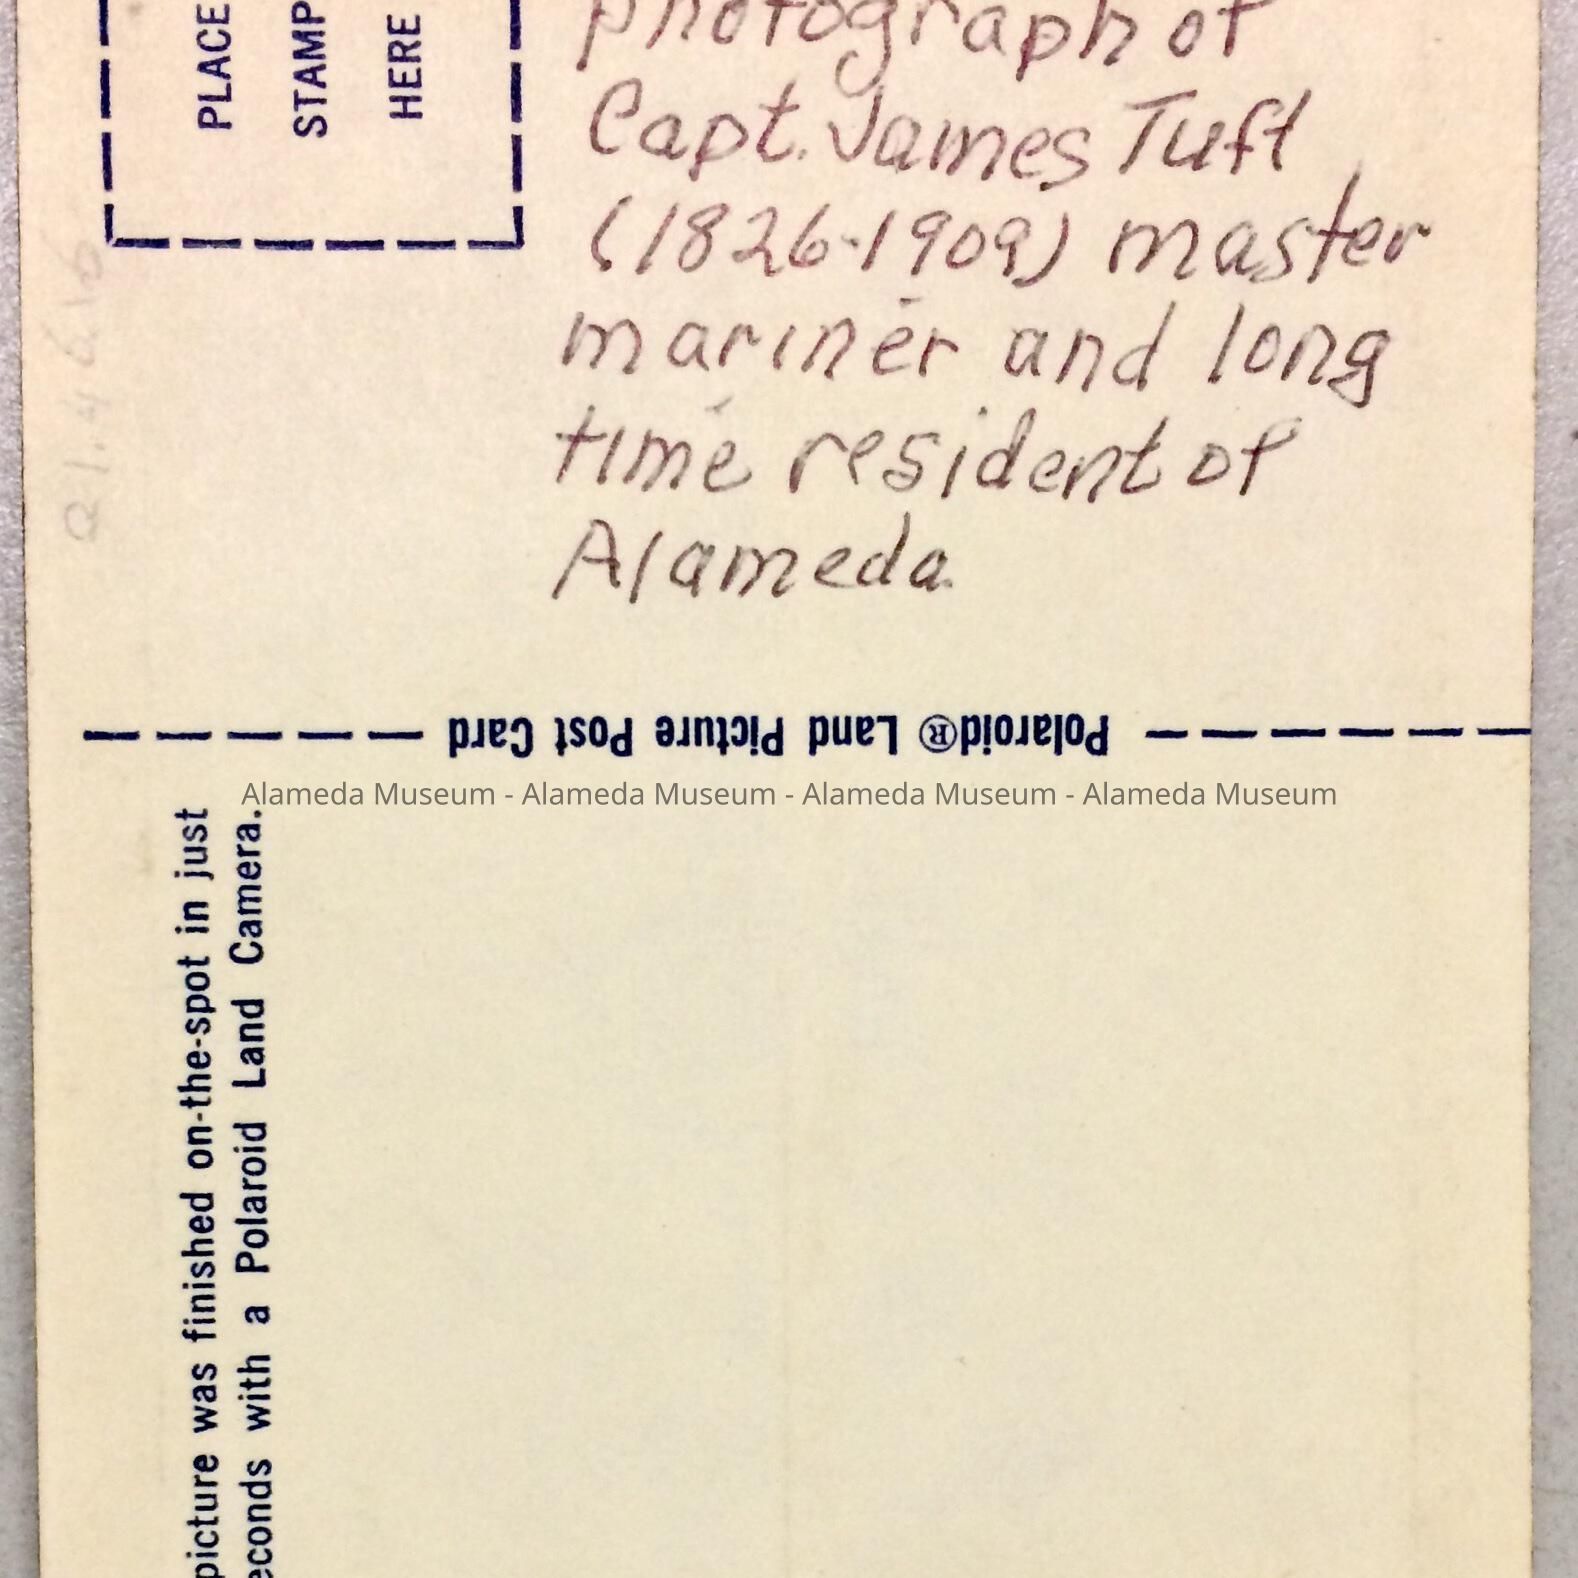 PLACE
STAMP
HERE
photograph of
Capt. James Tuft
(1826-1909) master
mariner and long
time resident of
Alameda
Polaroid® Land Picture Post Card
Alameda Museum - Alameda Museum - Alameda Museum - Alameda Museum
picture was finished on-the-spot in just
econds with a Polaroid Land Camera.